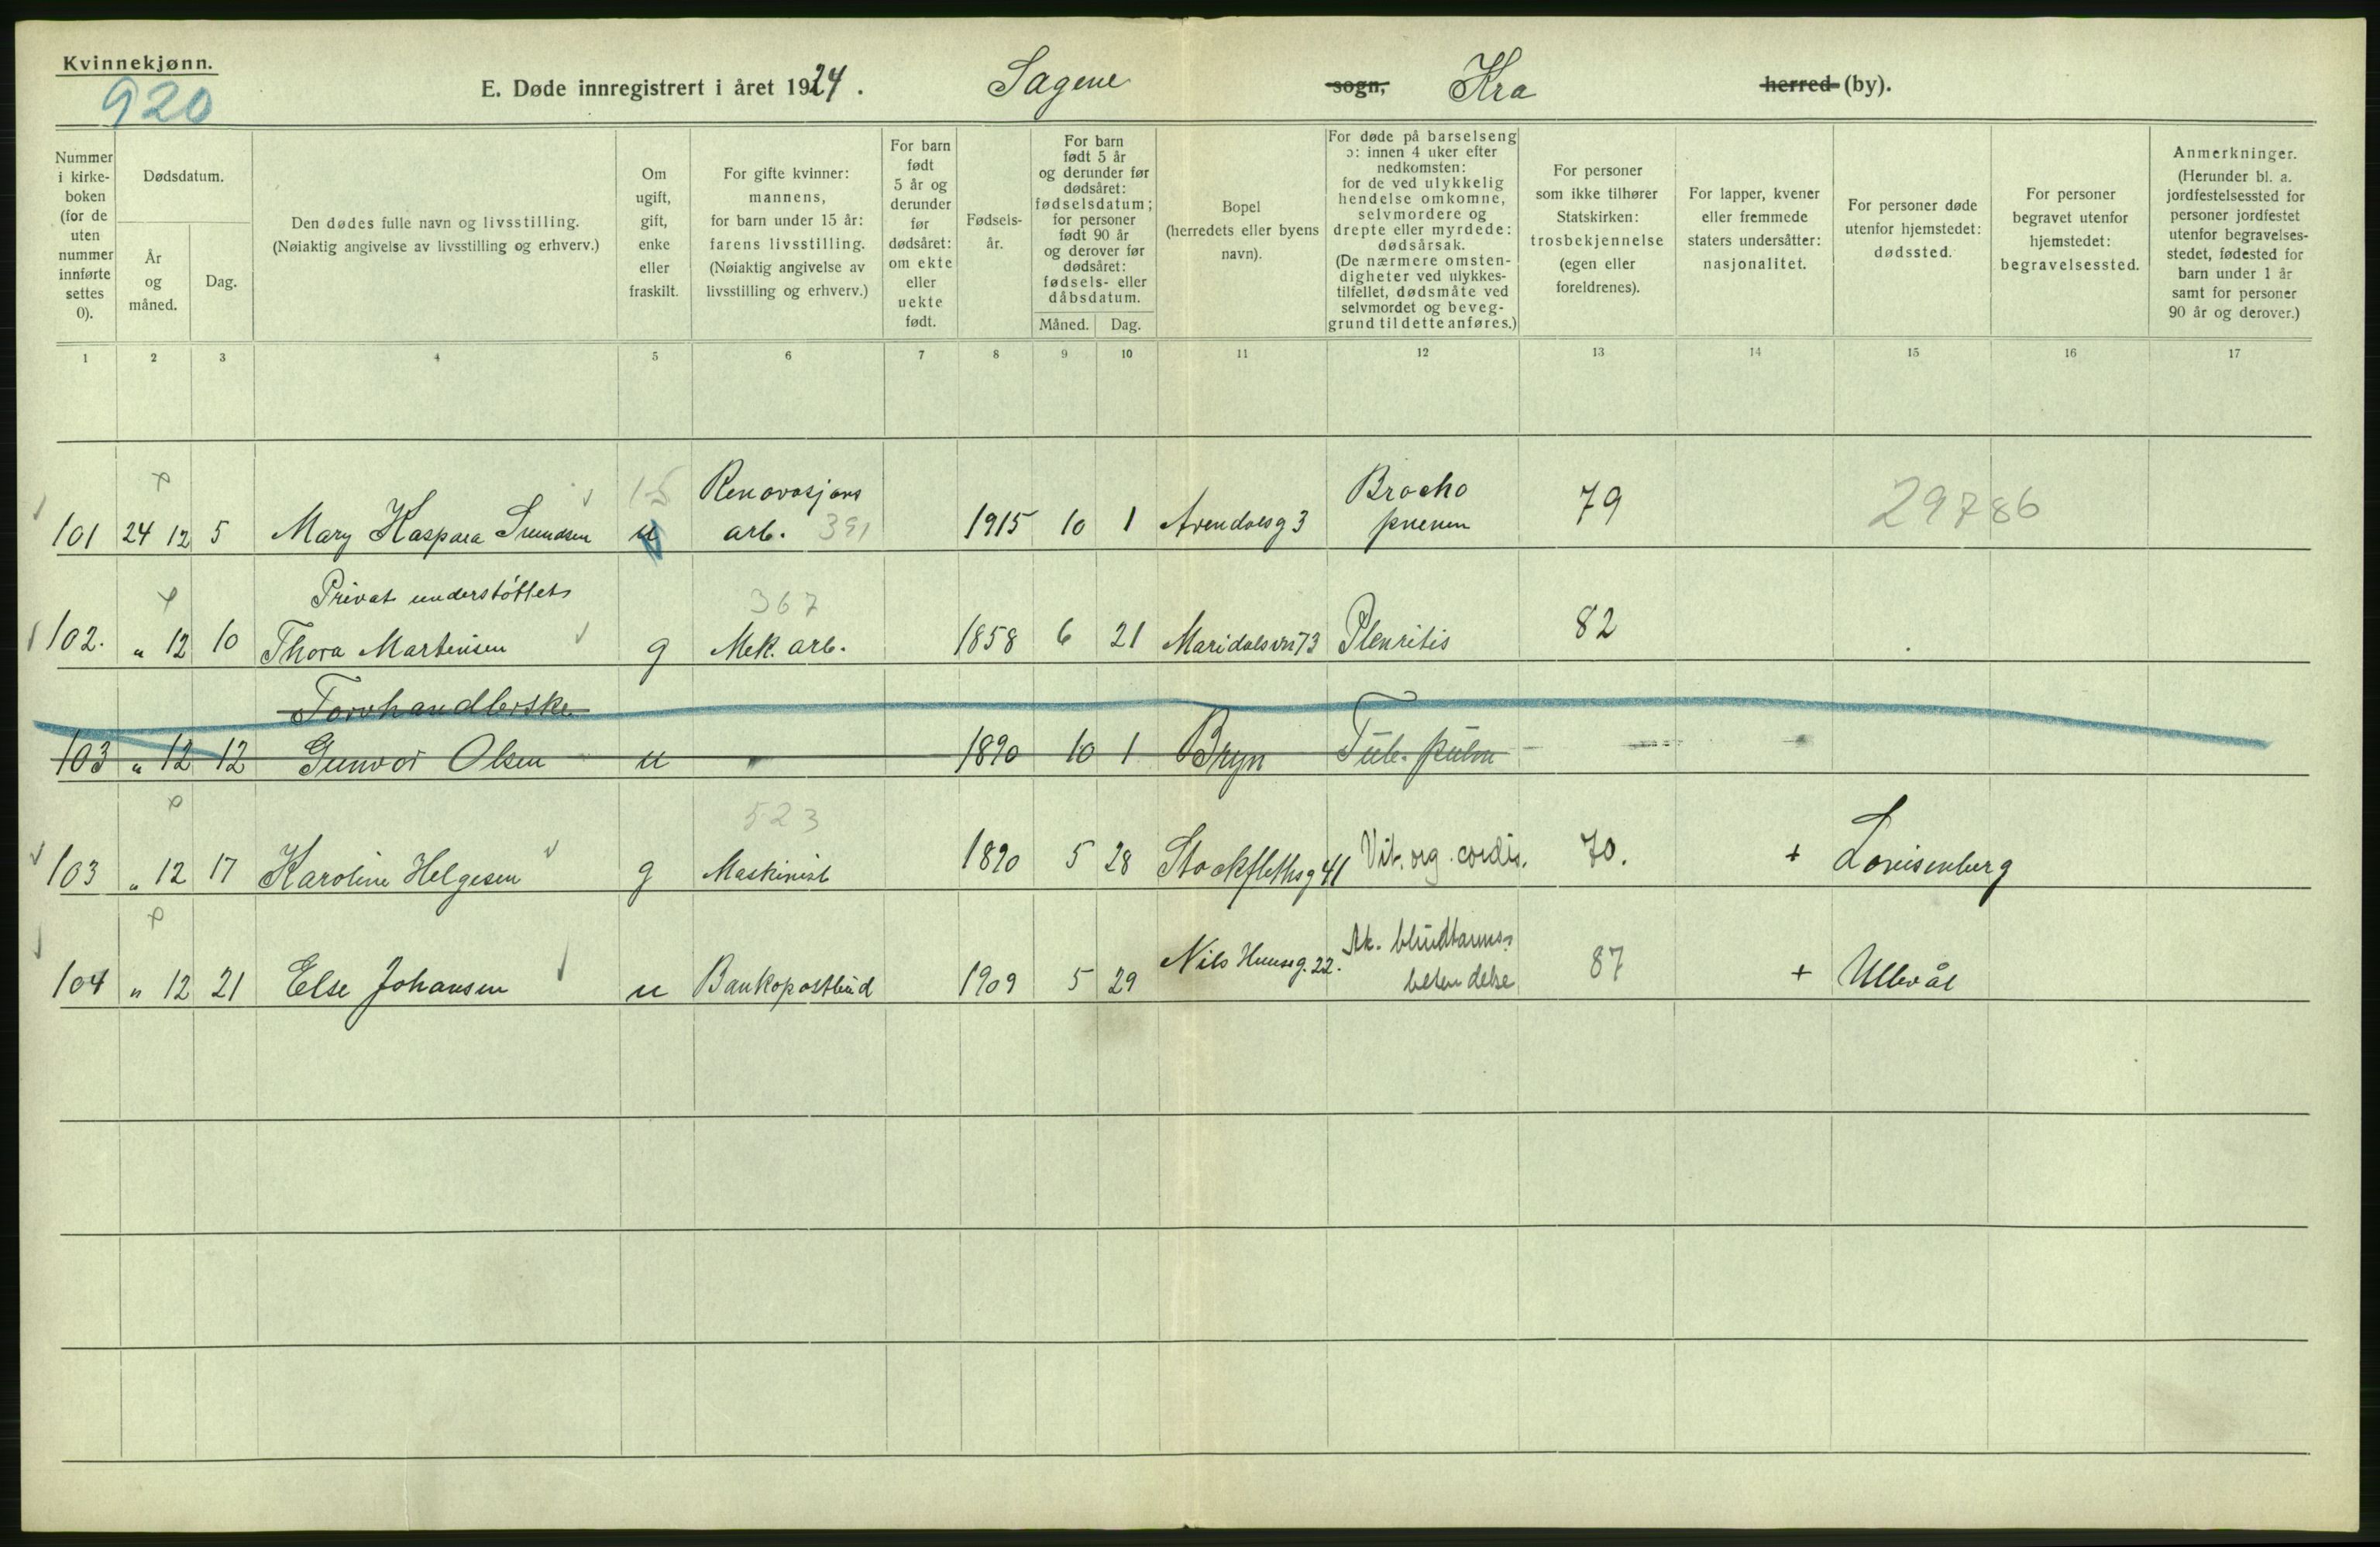 Kvinnekjønn.
920
E. Døde innregistrert i året 1924. Sagene sogn, Kra herred (by).
Nummer i kirke-boken (for de uten nummer innførte settes 0).
Dødsdatum.
År og måned.
Dag.
Den dødes fulle navn og livsstilling.
(Nøiaktig angivelse av livsstilling og erhverv.)
Om ugift, gift, enke eller fraskilt.
For gifte kvinner: mannens, for barn under 15 år: farens livsstilling. (Nøiaktig angivelse av livsstilling og erhverv.)
For barn født 5 år og derunder før dødsåret: om ekte eller uekte født.
Fødsels-år.
For barn født 5 år og derunder før dødsåret: fødselsdatum; for personer født 90 år og derover før dødsåret: fødsels- eller dåbsdatum.
Måned. Dag.
Bopel (herredets eller byens navn).
For døde på barselseng ɔ: innen 4 uker efter nedkomsten: for de ved ulykkelig hendelse omkomne, selvmordere og drepte eller myrdede: dødsårsak. (De nærmere omsten-digheter ved ulykkes-tilfellet, dødsmåte ved selvmordet og beveg-grund til dette anføres.)
For personer som ikke tilhører Statskirken: trosbekjennelse (egen eller foreldrenes).
For lapper, kvener eller fremmede staters undersåtter: nasjonalitet.
For personer døde utenfor hjemstedet: dødssted.
For personer begravet utenfor hjemstedet: begravelsessted.
Anmerkninger. (Herunder bl. a. jordfestelsessted for personer jordfestet utenfor begravelses-stedet, fødested for barn under 1 år samt for personer 90 år og derover.)
1 2 3 4 5 6 7 8 9 10 11 12 13 14 15 16 17
15 Renovasjons Brocho 79 29786
101 24 12 5 Mary Kaspara u arb. 391 1915 10 1 Arendalsg 3 pnevm
Privat understøttet 367
102. " 12 10 Thora Martinsen g Mek. arb. 1858 6 21 Maridalsvn 73 Pleuritis 82
Torvhandlerske
103 " 12 12 Gunvor Olsen u 1890 10 1 Bryn Tub. pulm
523
103 " 12 17 Karoline Helgesen g Maskinist 1890 5 28 Stockflethsg 41 Vit. org. cordis. 70. + Lovisenberg
Ak. blindtarms-
104 " 12 21 Else Johansen u Bankopostbud 1909 5 29 Nils Huusg. 22. betendelse 87 + Ullevål